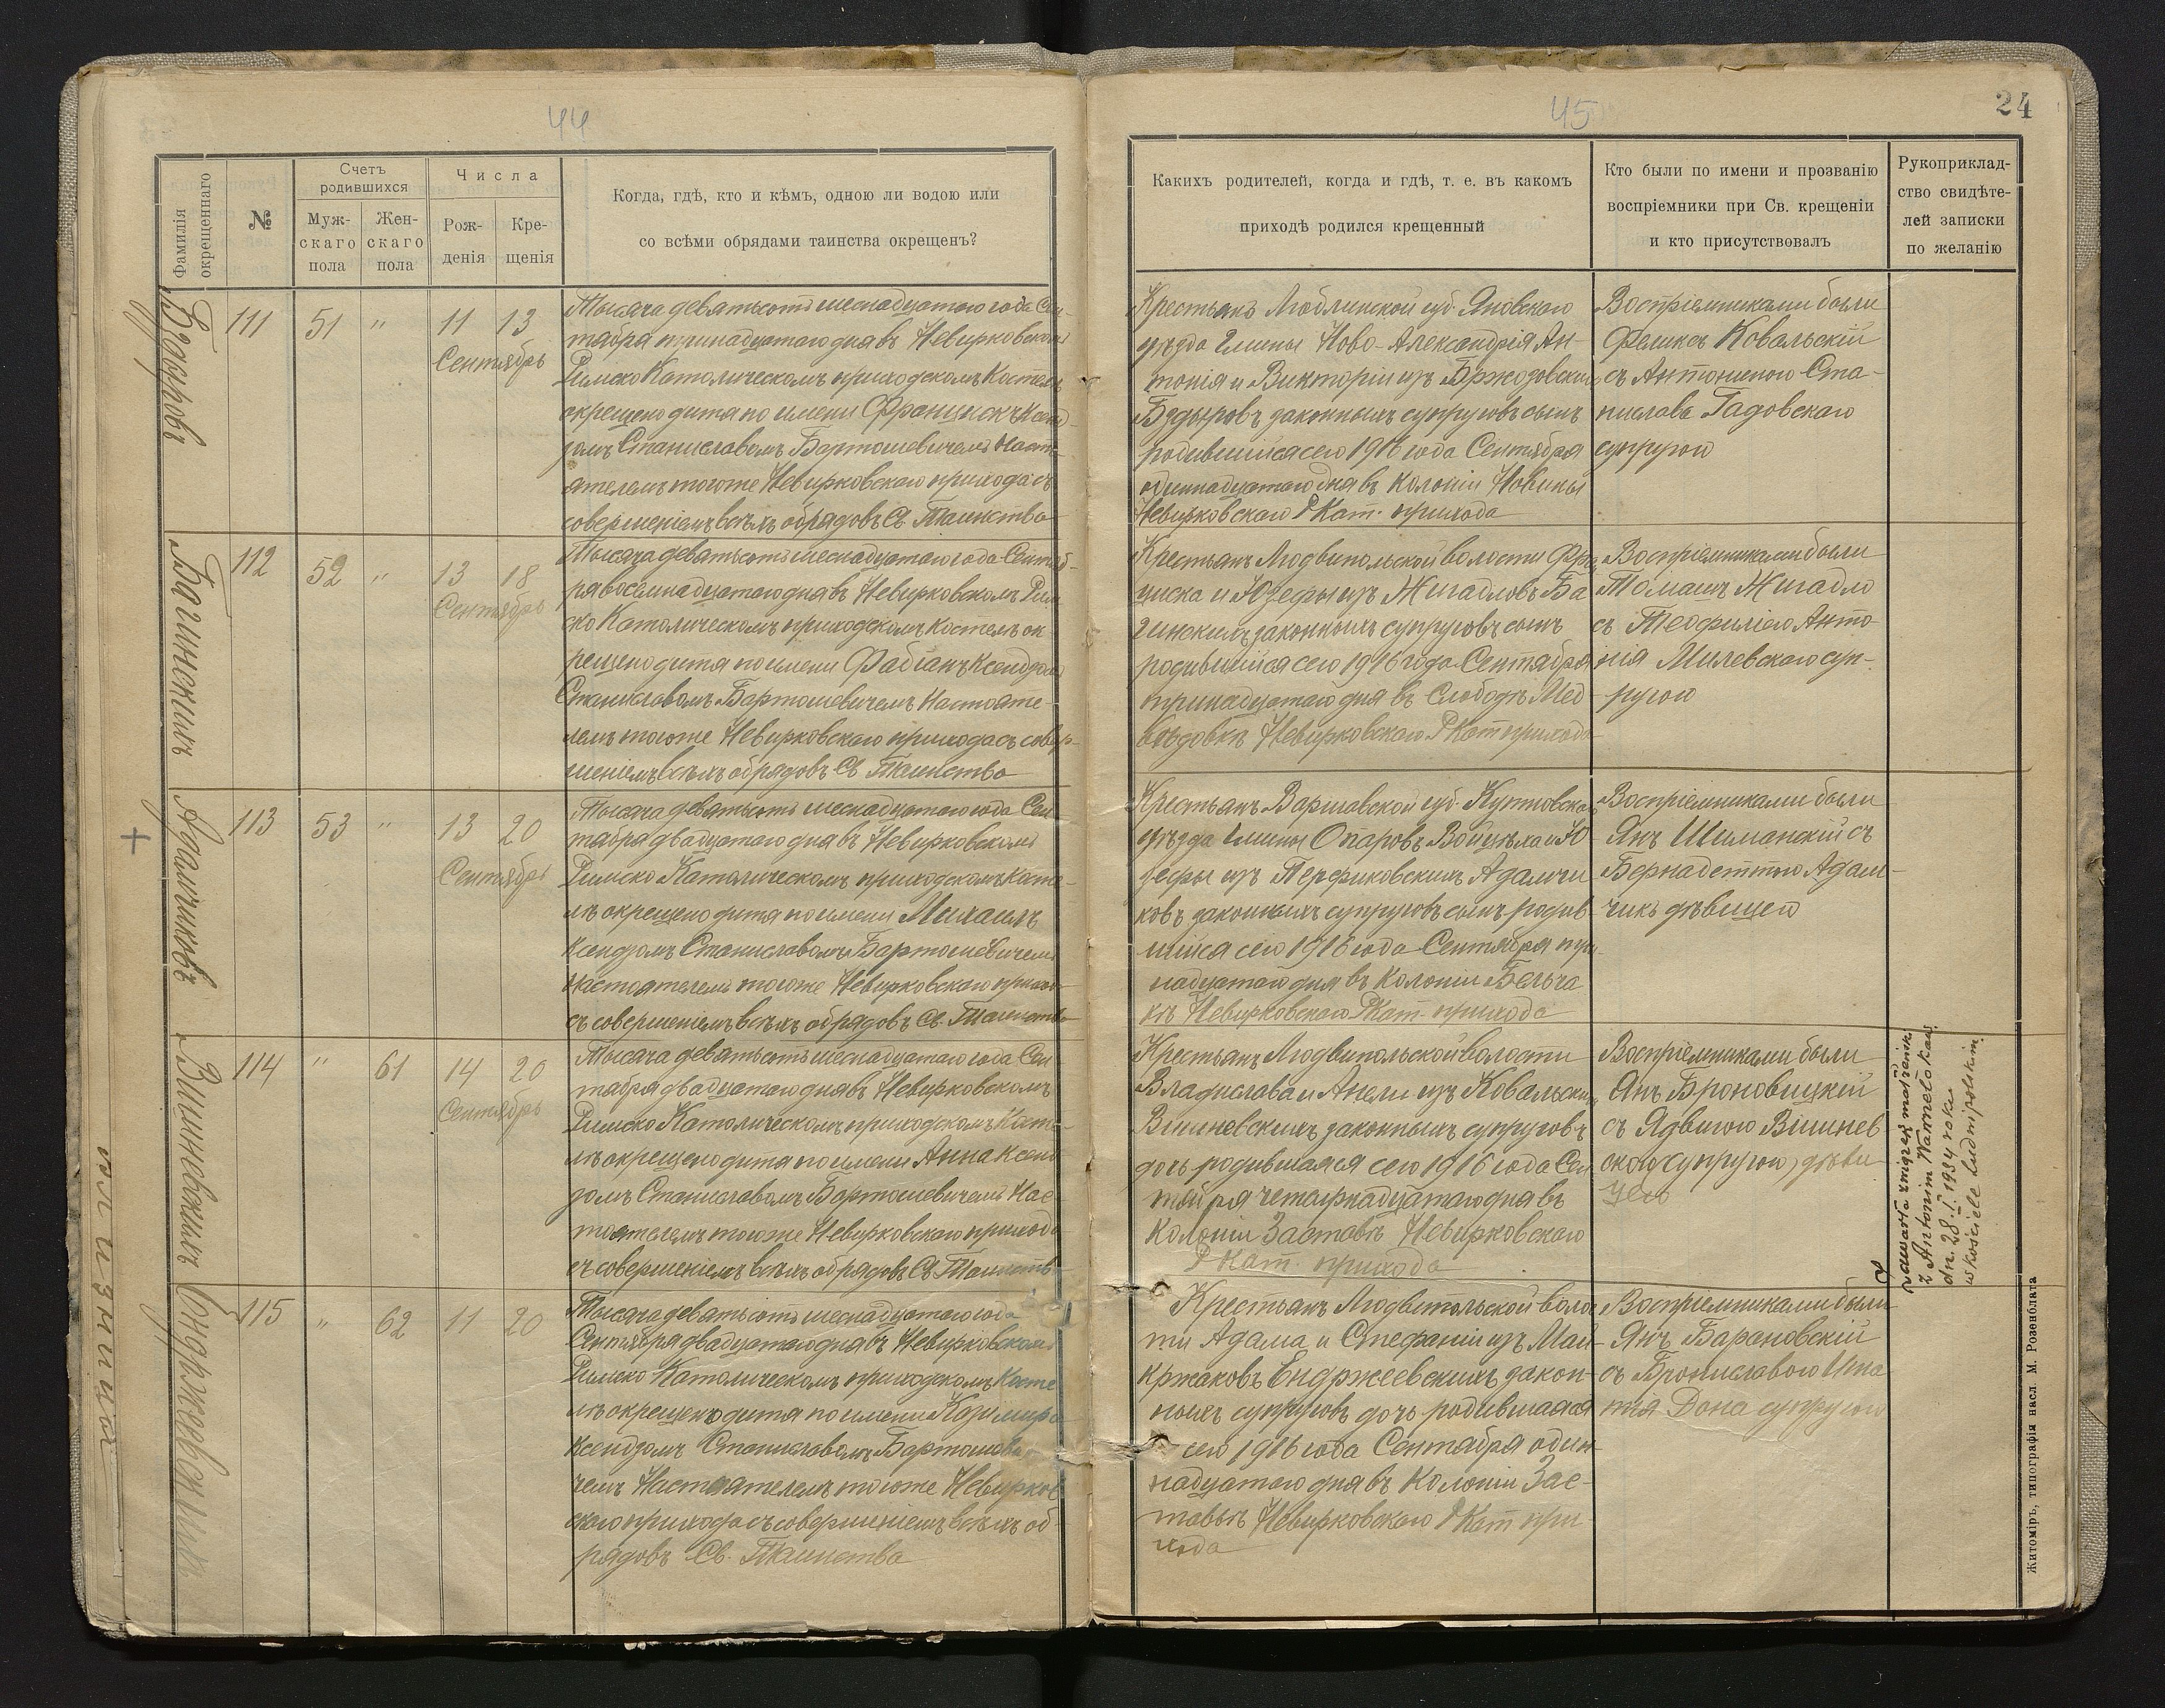 44
Фамилія
окрещеннаго
№
Счетъ
родившихся
Муж-
скаго
пола
Жен-
скаго
пола
Числа
Рож-
денія
Кре-
щенія
Когда, гдѣ, кто и кѣмъ, одною ли водою или
со всѣми обрядами таинства окрещенъ?
111
51
"
11
13
Сентябрь
Тысяча девятьсотъ шеснадцатого года Сен-
тября тринадцатого дня въ Невирковскомъ
Римско Католическомъ приходскомъ Костелѣ
окрещено дитя по имени Францискъ Ксенд-
зомъ Станиславомъ Бартошевичемъ Насто-
ятелемъ тогоже Невирковскаго прихода съ
совершеніемъ всѣхъ обрядовъ Св. Таинства
Багинскихъ
112
52
"
13
18
Сентябрь
Тысяча девятьсотъ шеснадцатого года Сентяб-
ря восемнадцатого дня въ Невирковскомъ Рим
ско Католическомъ приходскомъ Костелѣ ок-
рещено дитя по имени Фабіанъ Ксендзомъ
Станиславомъ Бартошевичемъ Настояте-
лемъ тогоже Невирковскаго прихода съ совер-
шеніемъ всѣхъ обрядовъ Св Таинства
+
Адамчиковъ
113
53
"
13
20
Сентябрь
Тысяча девятьсотъ шеснадцатого года Сен
тября двадцатого дня въ Невирковскомъ
Римско Католическомъ приходскомъ Косте-
лѣ окрещено дитя по имени Михаилъ
Ксендзомъ Станиславомъ Бартошевичемъ
Настоятелемъ тогоже Невирковскаго прихода
съ совершеніемъ всѣхъ обрядовъ Св. Таинства
Вишневскихъ
114
"
61
14
20
Сентябрь
Тысяча девятьсотъ шеснадцатого года Сен
тября двадцатого дня въ Невирковскомъ
Римско Католическомъ приходскомъ Косте-
лѣ окрещено дитя по имени Анна Ксенд
зомъ Станиславомъ Бартошевичемъ Нас-
тоятелемъ тогоже Невирковскаго прихода
съ совершеніемъ всѣхъ обрядовъ Св Таинств
Ендржеевскихъ
115
"
62
11
20
Тысяча девятьсотъ шеснадцатого года
Сентября двадцатого дня въ Невирковскомъ
Римско Католическомъ приходскомъ Косте
лѣ окрещено дитя по имени Казимира
Ксендзомъ Станиславомъ Бартошеви
чемъ Настоятелемъ тогоже Невирков
скаго прихода съ совершеніемъ всѣхъ об
рядовъ Св. Таинства
45
24
Какихъ родителей, когда и гдѣ, т. е. въ какомъ
приходѣ родился крещенный
Кто были по имени и прозванію
воспріемники при Св. крещеніи
и кто присутствовалъ
Рукоприклад-
ство свидѣте-
лей записки
по желанію
Крестьянъ Люблинской губ. Яновскаго
уѣзда Гмины Ново-Александрія Ан-
тонія и Викторіи изъ Бржозовскихъ
законныхъ супруговъ сынъ
родившійся сего 1916 года Сентября
одиннадцатого дня въ колоніи Новины
Невирковскаго Р Кат. прихода
Воспріемниками были
Феликсъ Ковальскій
съ Антониною Ста-
нислава Гадовскаго
супругою
Крестьянъ Людвипольской волости Фран
циска и Юзефы изъ Жигадловъ Ба
гинскихъ законныхъ супруговъ сынъ
родившійся сего 1916 года Сентября
тринадцатого дня въ Слободѣ Мед-
вѣдовкѣ Невирковскаго Р Кат прихода
Воспріемниками были
Томашъ Жигадло
съ Теофилією Анто-
нія Милевскаго суп-
ругою
Крестьянъ Варшавской губ. Кутновскаго
уѣзда Гмины Опоровъ Войцѣха и Ю
зефы изъ Перфиковскихъ Адамчи
ковъ законныхъ супруговъ сынъ родив
шійся сего 1916 года Сентября три
надцатого дня въ Колоніи Бельча
кѣ Невирковскаго Р Кат. прихода
Воспріемниками были
Янъ Шиманскій съ
Бернадеттою Адам-
чикъ дѣвицею
Крестьянъ Людвипольской волости
Владислава и Анели изъ Ковальскихъ
Вишневскихъ законныхъ супруговъ
дочь родившаяся сего 1916 года Сен
тября четырнадцатого дня въ
Колоніи Заставѣ Невирковскаго
Р Кат. прихода
Воспріемниками были
Янъ Броновицкій
съ Ядвигою Вишнев
скою супругою, дѣви
цею
Zawarła związek małżeński
z Antonim
dn. 28.I.1934 roku
w kościele Ludwipolskim
Крестьянъ Людвипольской волос
ти Адама и Стефаніи изъ Май-
кржаковъ Ендржеевскихъ закон-
ныхъ супруговъ дочь родившаяся
сего 1916 года Сентября один
надцатого дня въ Колоніи Зас-
тавьѣ Невирковскаго Р Кат при
хода
Воспріемниками были
Янъ Барановскій
съ Брониславою Игна
тія Дона супругою
Житоміръ, типографія насл. М. Розенблата